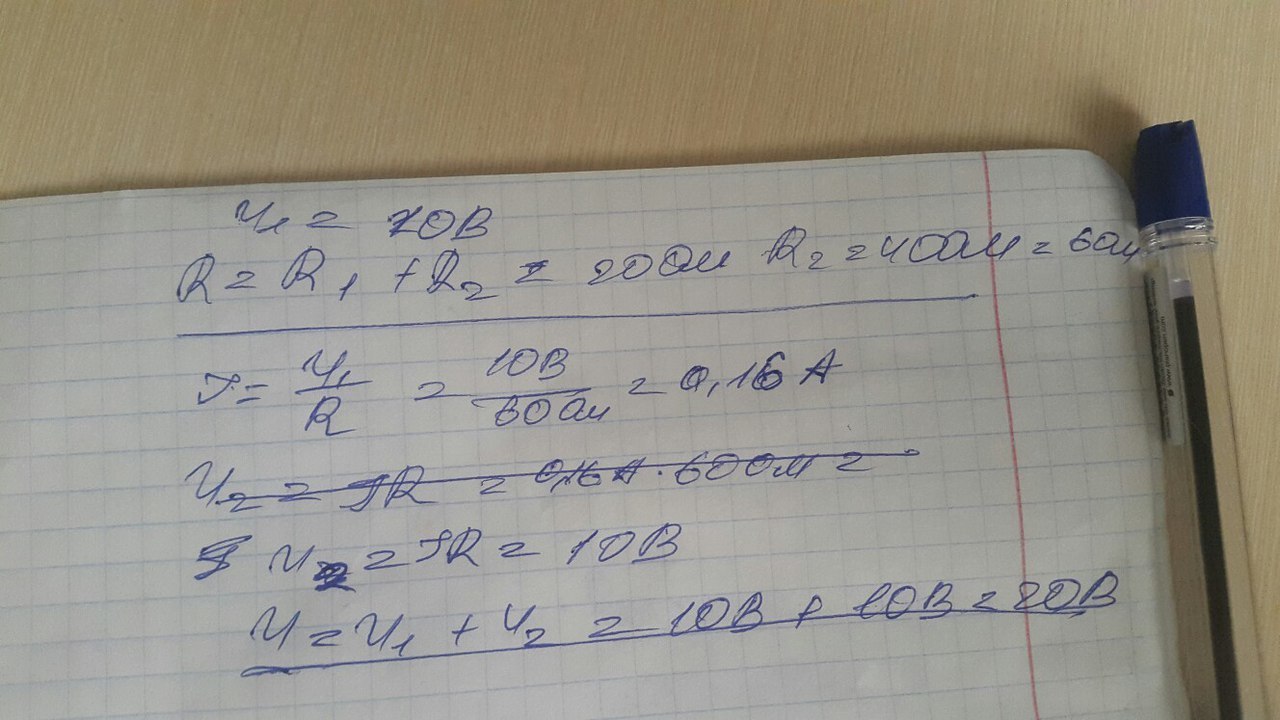 U₁ = 10В
R = R₁ + R₂ = 20Ом R₂ = 40Ом = 60м
I = U₁/R = 10В/60Ом = 0,16 А
U₂ = IR = 0,16А · 60Ом =
U₂ = IR = 10В
U = U₁ + U₂ = 10В + 10В = 20В